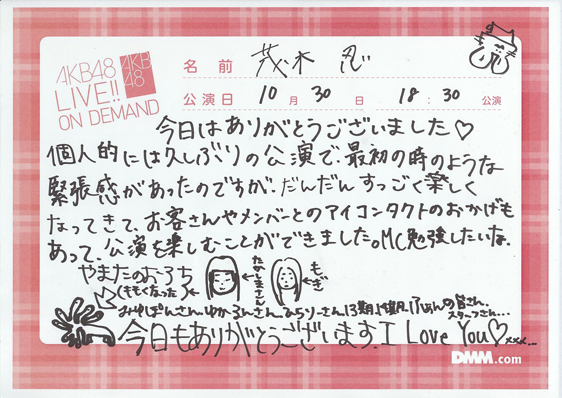 AKB48
LIVE!!
ON DEMAND
AKB
48
名前 茂木 忍
公演日 10月30日 18:30公演
今日はありがとうございました♡
個人的には久しぶりの公演で、最初の時のような
緊張感があったのですが、だんだんすっごく楽しく
なってきて、お客さんやメンバーとのアイコンタクトのおかげも
あって、公演を楽しむことができました。MC勉強したいな。
やまたのおろち
(ももくなった)
たかしまさん
もぎ
みゆぽんさん、ゆかるんさん、
13期
ふぁんの皆さん、
スタッフさん...
今日もありがとうございます。I Love You♡xxx...
DMM.com